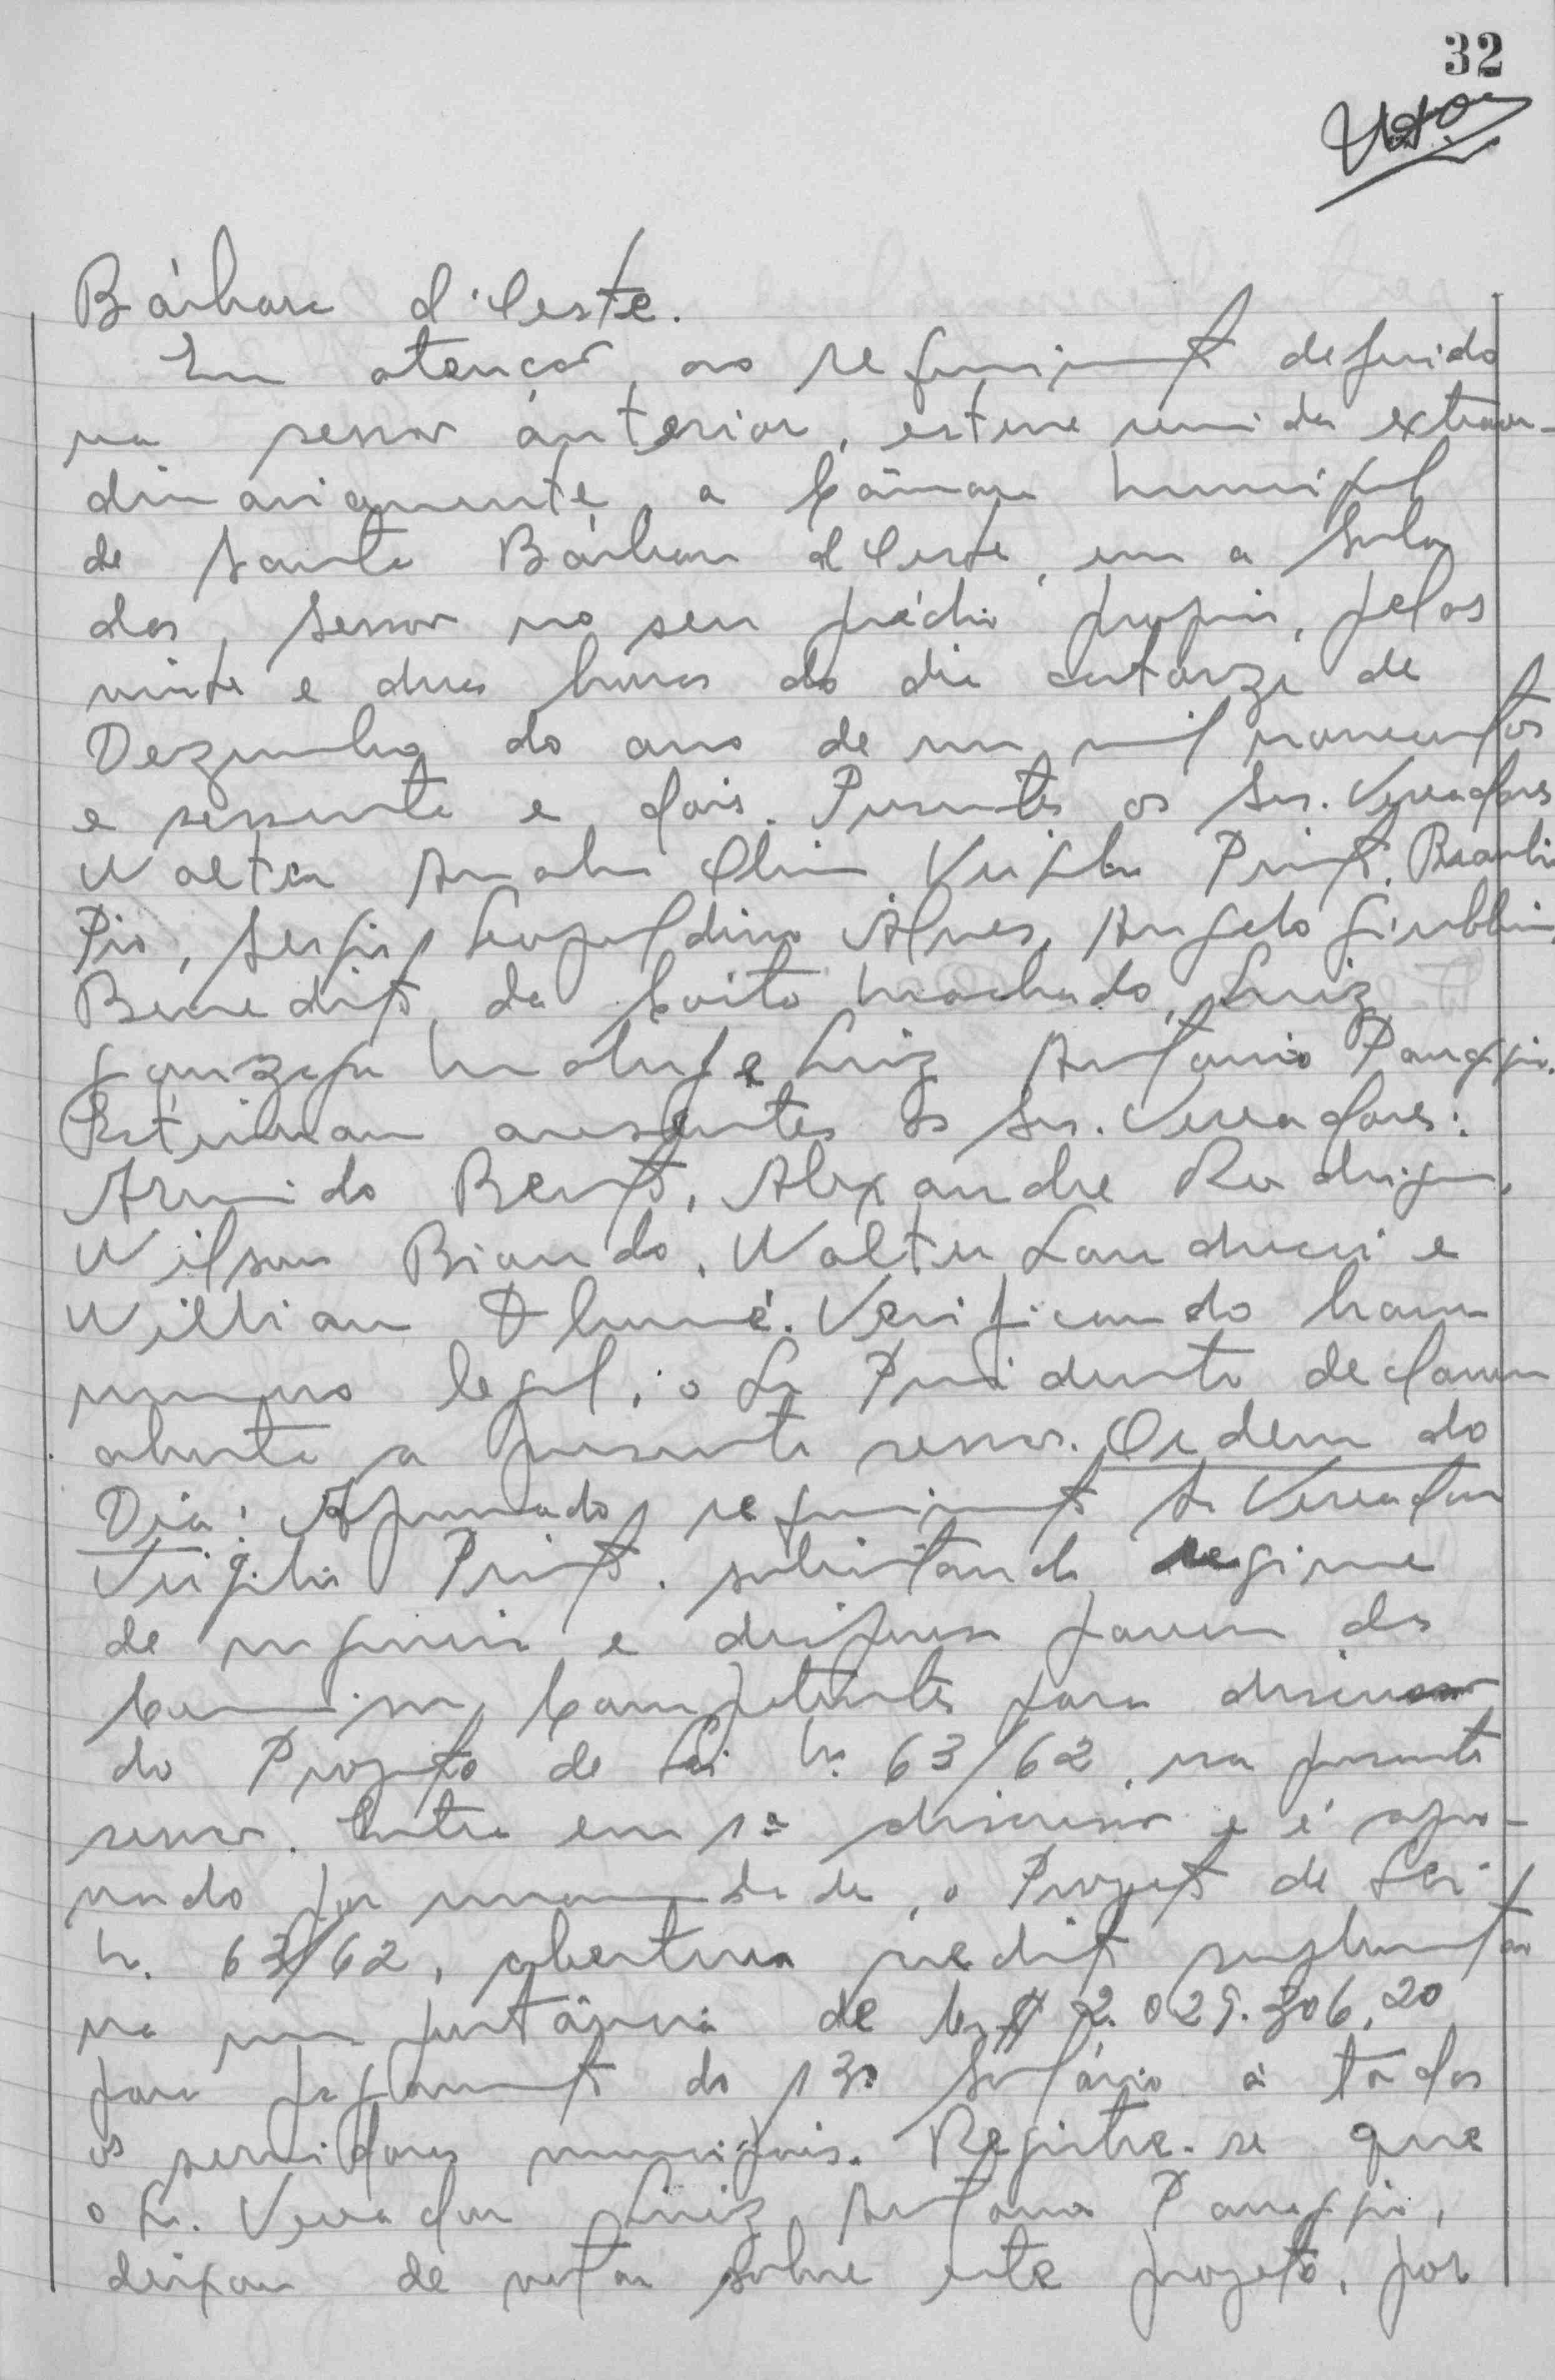 32
Bárbara d'Oeste.
Em atenção, ao requerimento deferido
na sessão anterior, esteve reunida extraor-
dinariamente, a Câmara Municipal
de Santa Bárbara d'Oeste, em a Sala
das, Sessão no seu prédio proprio, pelas
vinte e duas horas do dia catorze de
Dezembro do ano de um mil novecentos
e sessenta e dois. Presentes os Srs. Vereadores
Walter Olim Virgilio Pinto, Braulio
Pio, Sergio Leopoldino Alves, Angelo Giubbini,
Benedito da Costa Machado, Luiz
Gonzaga e Luiz Antonio Panaggio.
Estiveram ausentes os Srs. Vereadores:
Armindo Bento, Alexandre Rodrigues,
Wilson Biando, Walter Landucci e
Willian Verificando haver
numero legal, o Sr Presidente declarou
aberta a presente sessão. Ordem do
Dia: Aprovado requerimento Sr Vereador
Virgilio Pinto. solicitando regime
de urgencia e dispensa parecer das
Comissões Competentes para discussão
do Projeto de Lei N. 63/62, na presente
sessão. Entra em 1ª discussão e é apro-
vado por unanimidade, o Projeto de Lei
N. 63/62, abertura credito suplementar
na importância de Cr$ 2.029.306,20
para pagamento do 13º Salário à todos
os servidores municipais. Registre-se que
o Sr. Vereador Luiz Antonio Panaggio,
deixou de votar sobre este projeto, por